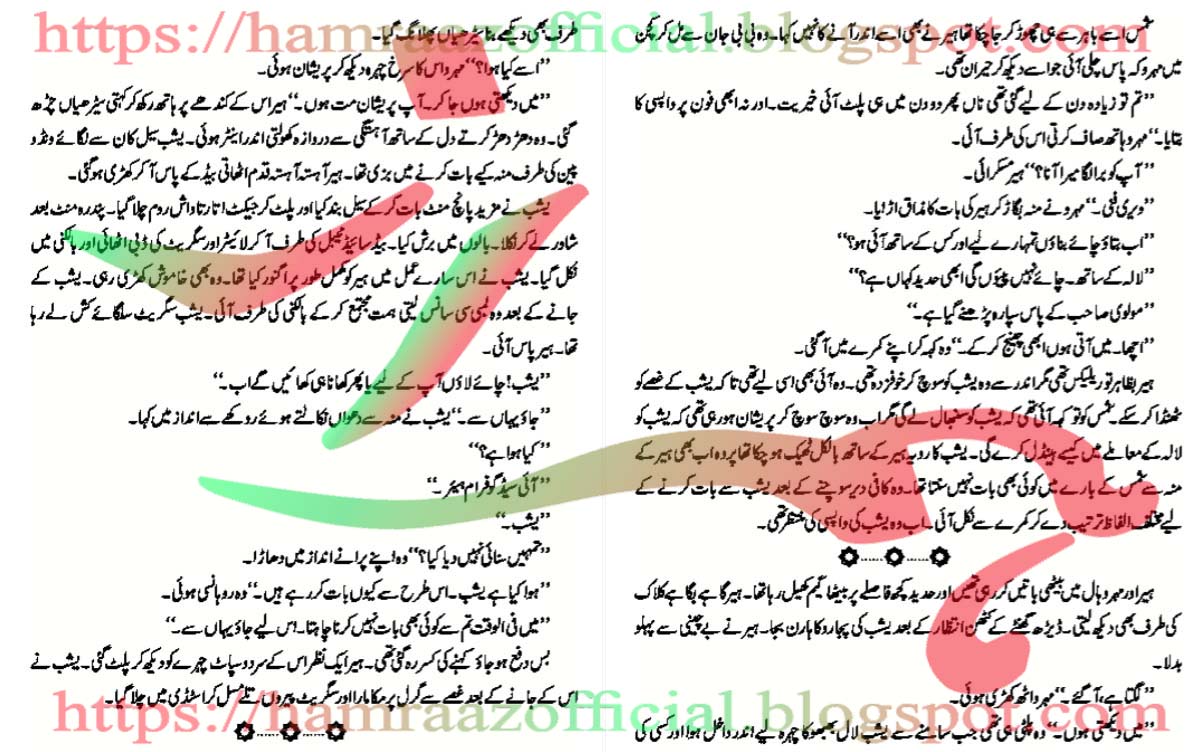 https://hamraazofficial.blogspot.com
شمس اسے باہر سے ہی چھوڑ کر جا چکا تھا ہیر نے بھی اسے اندر آنے کا نہیں کہا۔ وہ بی بی جان سے مل کر کچن
میں مہرو کے پاس چلی آئی جو اسے دیکھ کر حیران تھی۔
”تم تو زیادہ دن کے لیے گئی تھی ناں پھر دو دن میں ہی پلٹ آئی خیریت۔ اور نہ ابھی فون پر واپسی کا
بتایا۔“ مہرو ہاتھ صاف کرتی اس کی طرف آئی۔
”آپ کو برا لگا میرا آنا؟“ ہیر مسکرائی۔
”ویری فنی۔“ مہرو نے منہ بگاڑ کر ہیر کی بات کا مذاق اڑایا۔
”اب بتاؤ چائے بناؤں تمہارے لیے اور کس کے ساتھ آئی ہو؟“
”لالہ کے ساتھ۔ چائے نہیں پیوں گی ابھی حدید کہاں ہے؟“
”مولوی صاحب کے پاس سپارہ پڑھنے گیا ہے۔“
”اچھا۔ میں آتی ہوں ابھی چینج کر کے۔“ وہ کہہ کر اپنے کمرے میں آ گئی۔
ہیر بظاہر تو ریلیکس تھی مگر اندر سے وہ یشب کو سوچ کر خوفزدہ تھی۔ وہ آئی بھی اسی لیے تھی تاکہ یشب کے غصے کو
ٹھنڈا کر سکے۔ شمس کو تو کہہ آئی تھی کہ یشب کو سنبھال لے گی مگر اب وہ سوچ سوچ کر پریشان ہو رہی تھی کہ یشب کو
لالہ کے معاملے میں کیسے ہینڈل کرے گی۔ یشب کا رویہ ہیر کے ساتھ بالکل ٹھیک ہو چکا تھا پر وہ اب بھی ہیر کے
منہ سے شمس کے بارے میں کوئی بھی بات نہیں سنتا تھا۔ وہ کافی دیر سوچنے کے بعد یشب سے بات کرنے کے
لیے مختلف الفاظ ترتیب دے کر کمرے سے نکل آئی۔ اب وہ یشب کی واپسی کی منتظر تھی۔
ہیر اور مہرو ہال میں بیٹھی باتیں کر رہی تھیں اور حدید کچھ فاصلے پر بیٹھا گیم کھیل رہا تھا۔ ہیر گاہے بگاہے کلاک
کی طرف بھی دیکھ لیتی۔ ڈیڑھ گھنٹے کے کٹھن انتظار کے بعد یشب کی پجارو کا ہارن بجا۔ ہیر نے بے چینی سے پہلو
بدلا۔
”لگتا ہے، آ گئے۔“ مہرو اٹھ کھڑی ہوئی۔
”میں دیکھتی ہوں۔“ وہ پلٹی ہی تھی جب سامنے سے یشب لال بھبھوکا چہرہ لیے اندر داخل ہوا اور کسی کی
طرف بھی دیکھے بنا سیڑھیاں پھلانگ گیا۔
”اسے کیا ہوا؟“ مہرو اس کا سرخ چہرہ دیکھ کر پریشان ہوئی۔
”میں دیکھتی ہوں جا کر۔ آپ پریشان مت ہوں۔“ ہیر اس کے کندھے پر ہاتھ رکھ کر کہتی سیڑھیاں چڑھ
گئی۔ وہ دھڑ دھڑ کرتے دل کے ساتھ آہستگی سے دروازہ کھولتی اندر اینٹر ہوئی۔ یشب سیل کان سے لگائے ونڈو
پین کی طرف منہ کیے بات کرنے میں بزی تھا۔ ہیر آہستہ آہستہ قدم اٹھاتی بیڈ کے پاس آ کر کھڑی ہو گئی۔
یشب نے مزید پانچ منٹ بات کر کے سیل بند کیا اور پلٹ کر جیکٹ اتارتا واش روم چلا گیا۔ پندرہ منٹ بعد
شاور لے کر نکلا۔ بالوں میں برش کیا۔ بیڈ سائیڈ ٹیبل کی طرف آ کر لائیٹر اور سگریٹ کی ڈبی اٹھائی اور بالکنی میں
نکل گیا۔ یشب نے اس سارے عمل میں ہیر کو مکمل طور پر اگنور کیا تھا۔ وہ بھی خاموش کھڑی رہی۔ یشب کے
جانے کے بعد وہ لمبی سی سانس لیتی ہمت مجتمع کر کے بالکنی کی طرف آئی۔ یشب سگریٹ سلگائے کش لے رہا
تھا۔ ہیر پاس آئی۔
”یشب! چائے لاؤں آپ کے لیے یا پھر کھانا ہی کھائیں گے اب۔“
”جاؤ یہاں سے۔“ یشب نے منہ سے دھواں نکالتے ہوئے روکھے سے انداز میں کہا۔
”کیا ہوا ہے؟“
”آئی سیڈ گو فرام ہیئر۔“
”یشب۔“
”تمہیں سنائی نہیں دیا کیا؟“ وہ اپنے پرانے انداز میں دھاڑا۔
”ہوا کیا ہے یشب۔ اس طرح سے کیوں بات کر رہے ہیں۔“ وہ روہانسی ہوئی۔
”میں فی الوقت تم سے کوئی بھی بات نہیں کرنا چاہتا۔ اس لیے جاؤ یہاں سے۔“
بس دفع ہو جاؤ کہنے کی کسر رہ گئی تھی۔ ہیر ایک نظر اس کے سرد و سپاٹ چہرے کو دیکھ کر پلٹ گئی۔ یشب نے
اس کے جانے کے بعد غصے سے گرل پر مکا مارا اور سگریٹ پیروں تلے مسل کر اسٹڈی میں چلا گیا۔
https://hamraazofficial.blogspot.com